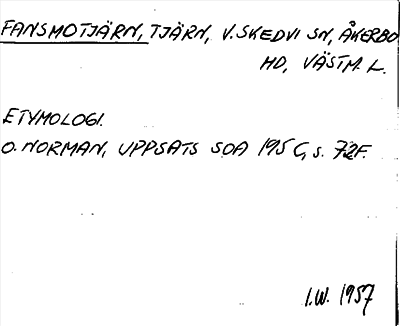 FANSMOTJÄRN, TJÄRN, V. SKEDVI SN, ÅKERBO
HD, VÄSTM. L.
ETYMOLOGI.
O. NORMAN, UPPSATS SOA 195 s. 72F.
I.W. 1957